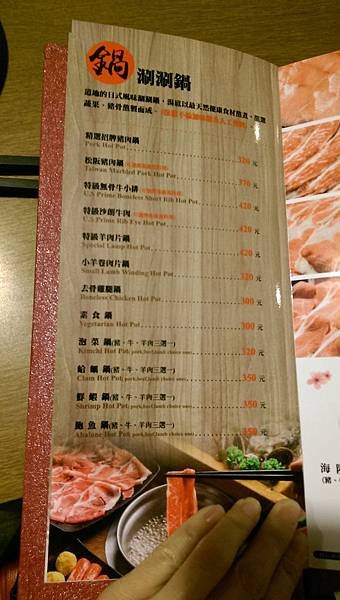 鍋 涮涮鍋
道地的日式風味涮涮鍋，湯底以最天然健康食材熬煮，
蔬果、豬骨熬製而成。
精選招牌豬肉鍋 320 元
Pork Hot Pot
松阪豬肉鍋 370 元
Taiwan Marbled Pork Hot Pot
特級無骨牛小排 420 元
U.S Prime Boneless Short Rib Hot Pot
特級沙朗牛肉 420 元
U.S Prime Rib Eye Hot Pot
特級羊肉片鍋 420 元
Special Lamp Hot Pot
小羊卷肉片鍋 320 元
Small Lamb Winding Hot Pot
去骨雞腿鍋 300 元
Boneless Chicken Hot Pot
素食鍋 300 元
Vegetarian Hot Pot
泡菜鍋(豬、牛、羊肉三選一) 320 元
Kimchi Hot Pot( pork,beef,lamb choice one)
蛤蠣鍋(豬、牛、羊肉三選一) 350 元
Clam Hot Pot( pork,beef,lamb choice one)
鮮蝦鍋(豬、牛、羊肉三選一) 350 元
Shrimp Hot Pot( pork,beef,lamb choice one)
鮑魚鍋(豬、牛、羊肉三選一) 450 元
Abalone Hot Pot( pork,beef,lamb choice one)
海
(豬、